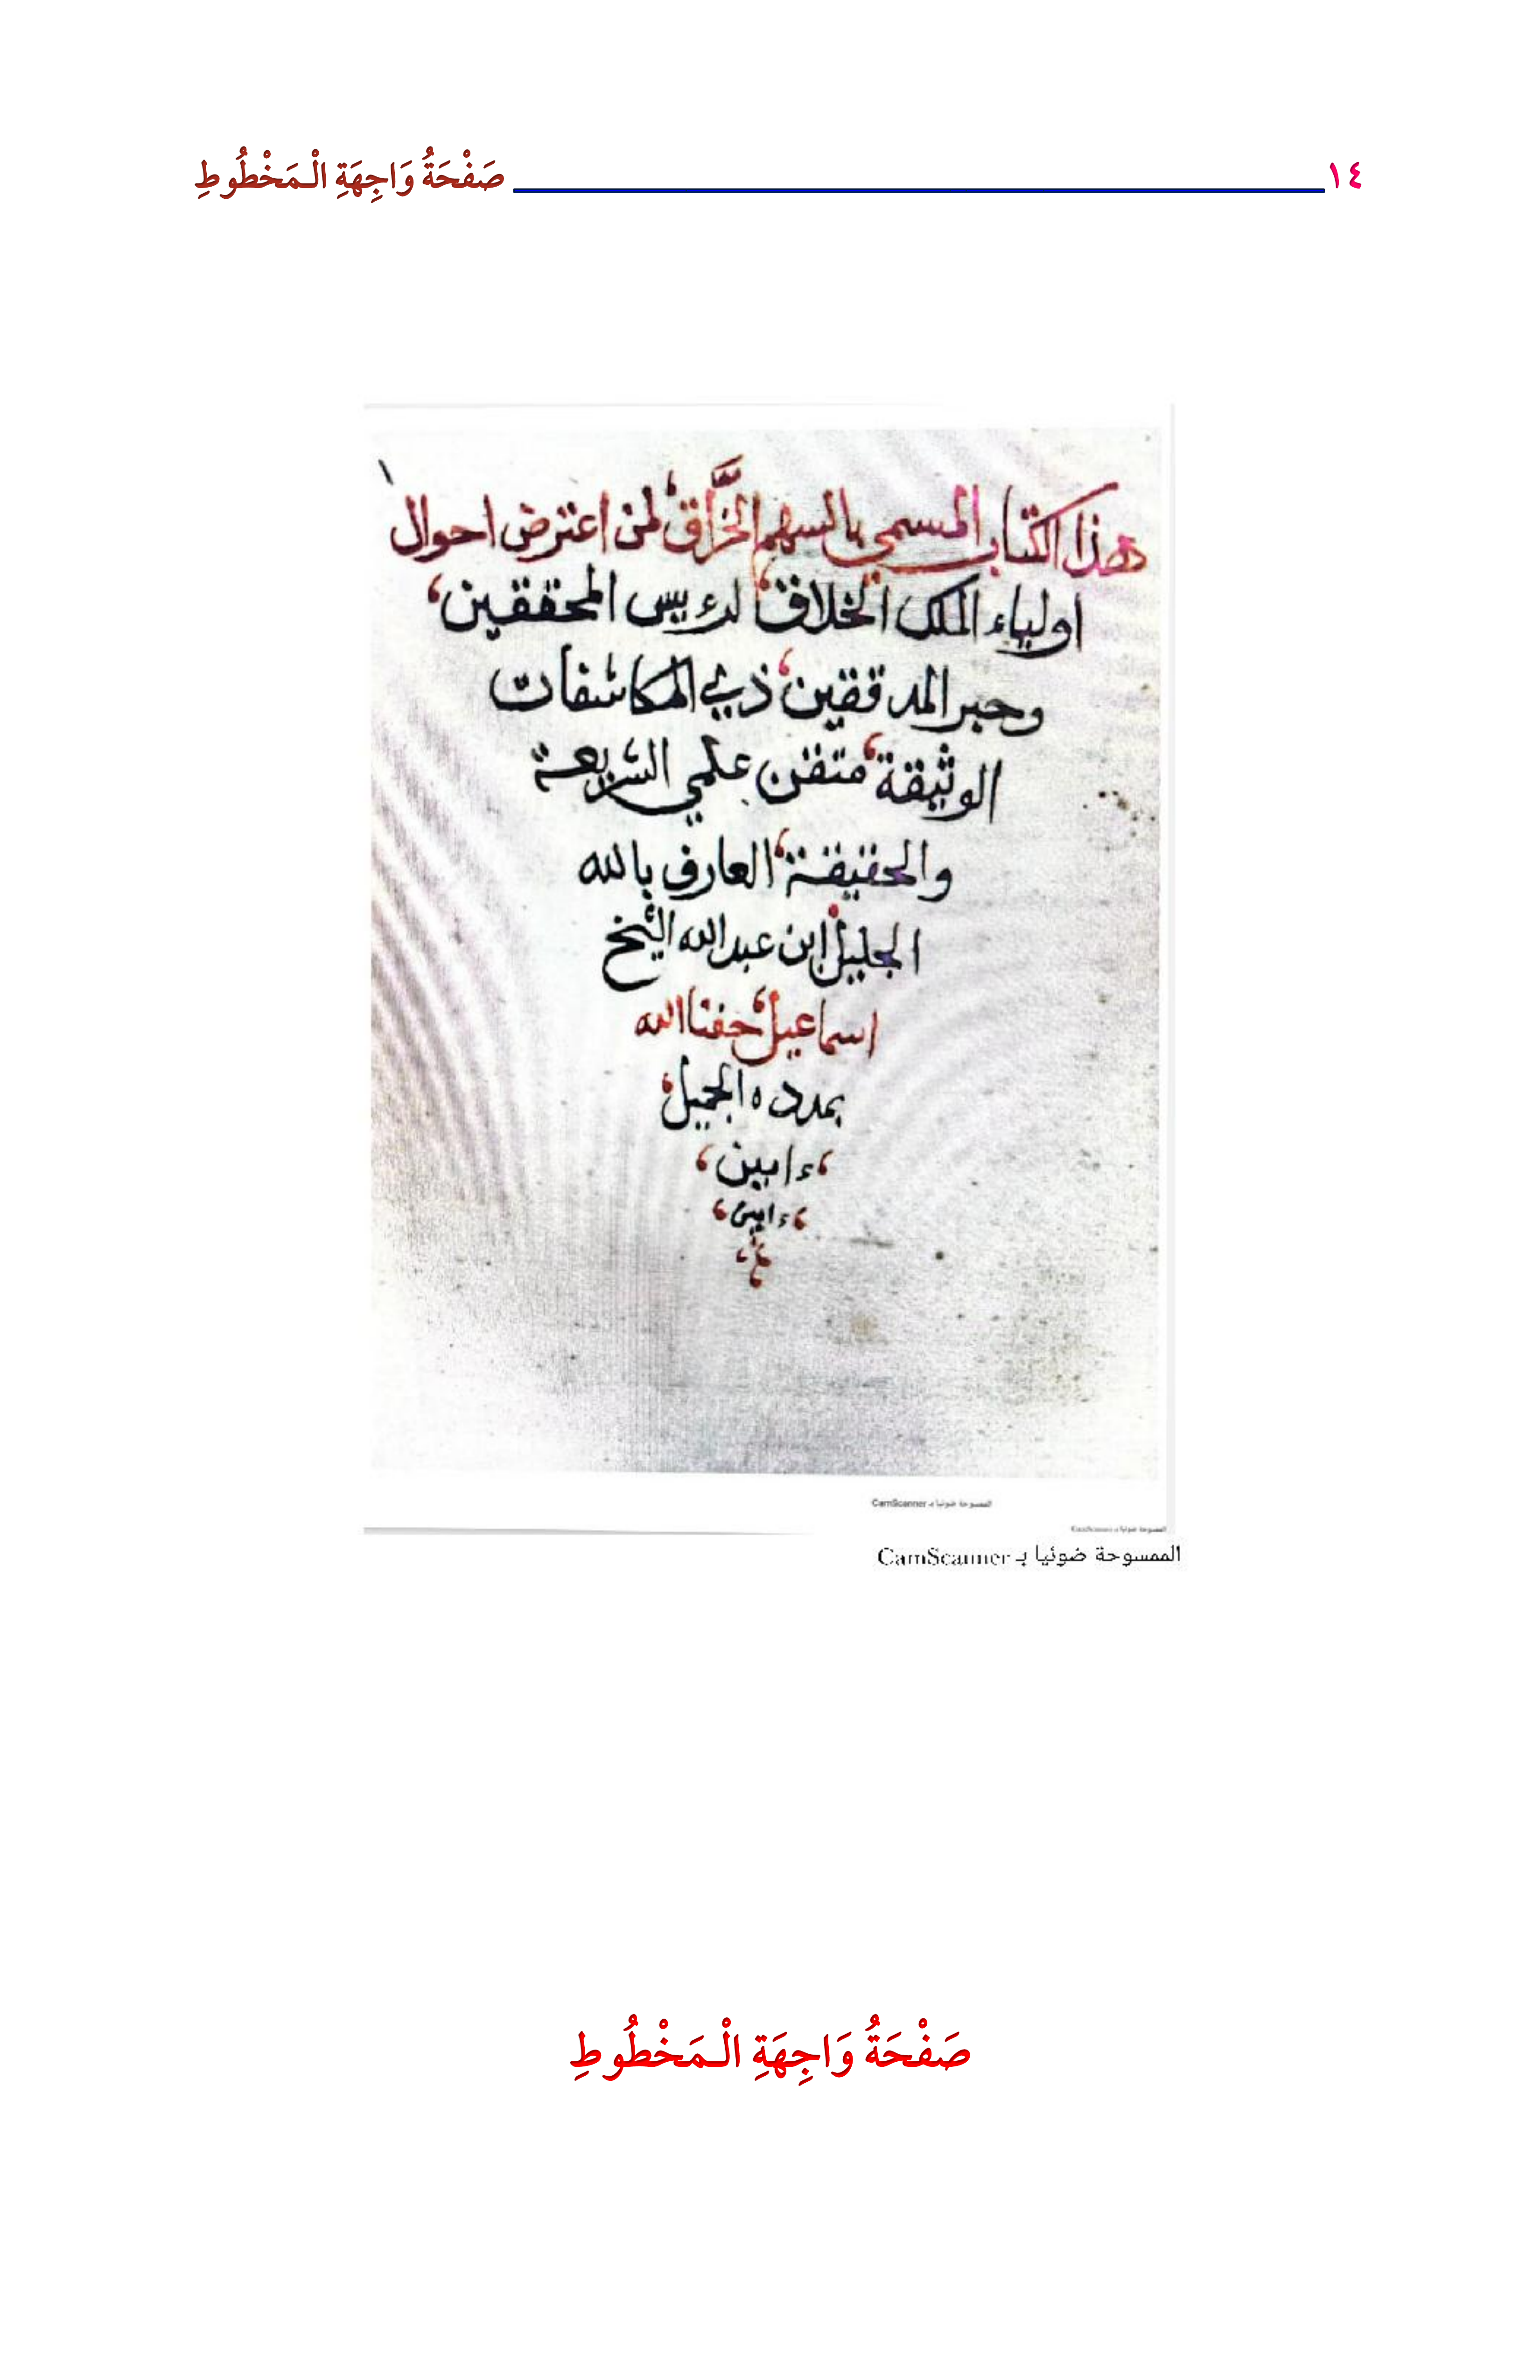 ١٤ صَفْحَةُ وَاجِهَةِ الْـمَخْطُوطِ
١
هذا الكتاب المسمي بالسهم الخَرَّاق، لمن اعترض احوال
اولياء الملك الخلاق، لرءيس المحققين،
وحبر المدققين، ذي المكاشفات
الوثيقة، متقن علمي الشريعة
والحقيقة، العارف بالله
الجليل، ابن عبد الله الشيخ
اسماعيل، حفنا الله
بمدده الجميل،
،ءامين،
،ءامين،
الممسوحة ضوئيا بـ CamScanner
الممسوحة ضوئيا بـ CamScanner
الممسوحة ضوئيا بـ CamScanner
صَفْحَةُ وَاجِهَةِ الْـمَخْطُوطِ